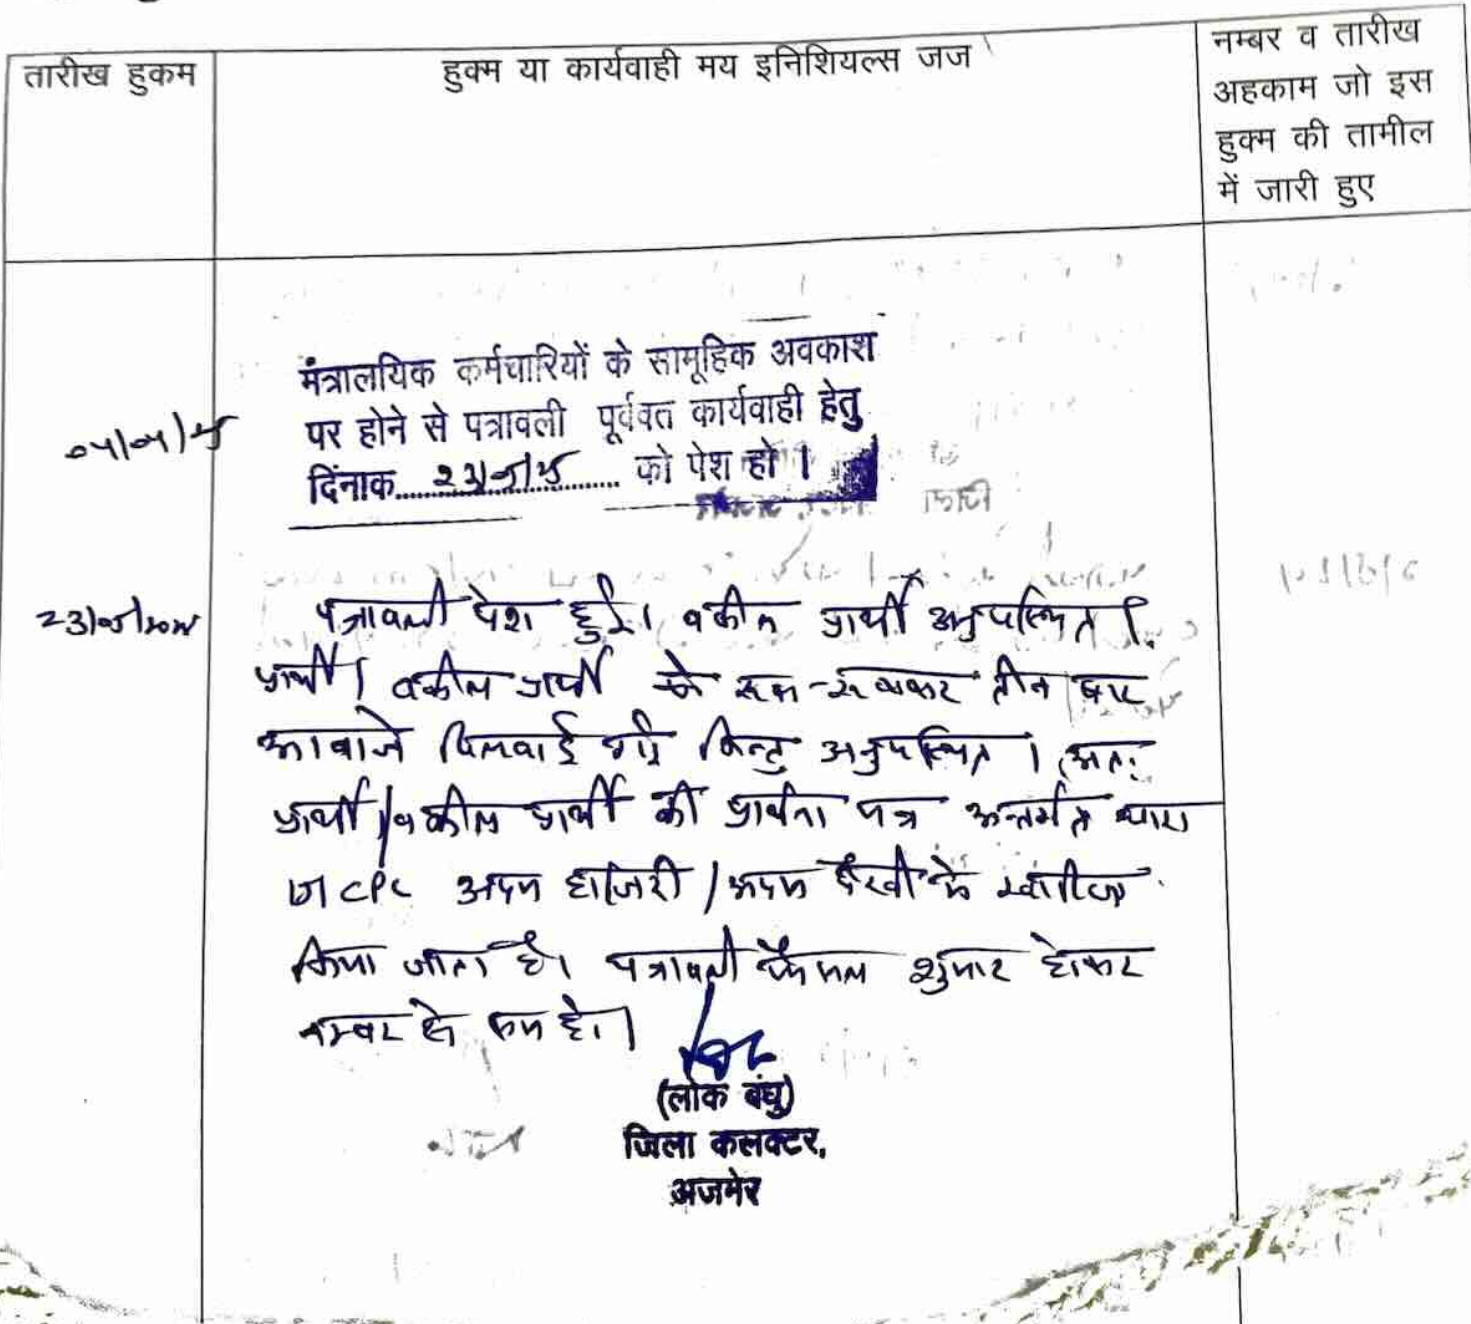 तारीख हुकम
हुक्म या कार्यवाही मय इनिशियल्स जज
नम्बर व तारीख
अहकाम जो इस
हुक्म की तामील
में जारी हुए
मंत्रालयिक कर्मचारियों के सामूहिक अवकाश
पर होने से पत्रावली पूर्ववत कार्यवाही हेतु
दिंनाक.................... को पेश हो ।
पत्रावली पेश हुई। वकील प्रार्थी अनुपस्थित ।
प्रार्थी / वकील प्रार्थी को रूक-रूककर तीन बार
आवाजे दिलवाई गई किन्तु अनुपस्थित । अतः
प्रार्थी / वकील प्रार्थी की प्रार्थना पत्र अन्तर्गत धारा
151 CPC अदम हाजिरी / अदम पैरवी के खारिज
किया जाता है। पत्रावली फैसल शुमार होकर
नम्बर से कम हो।
(लोक बंधु)
जिला कलक्टर,
अजमेर